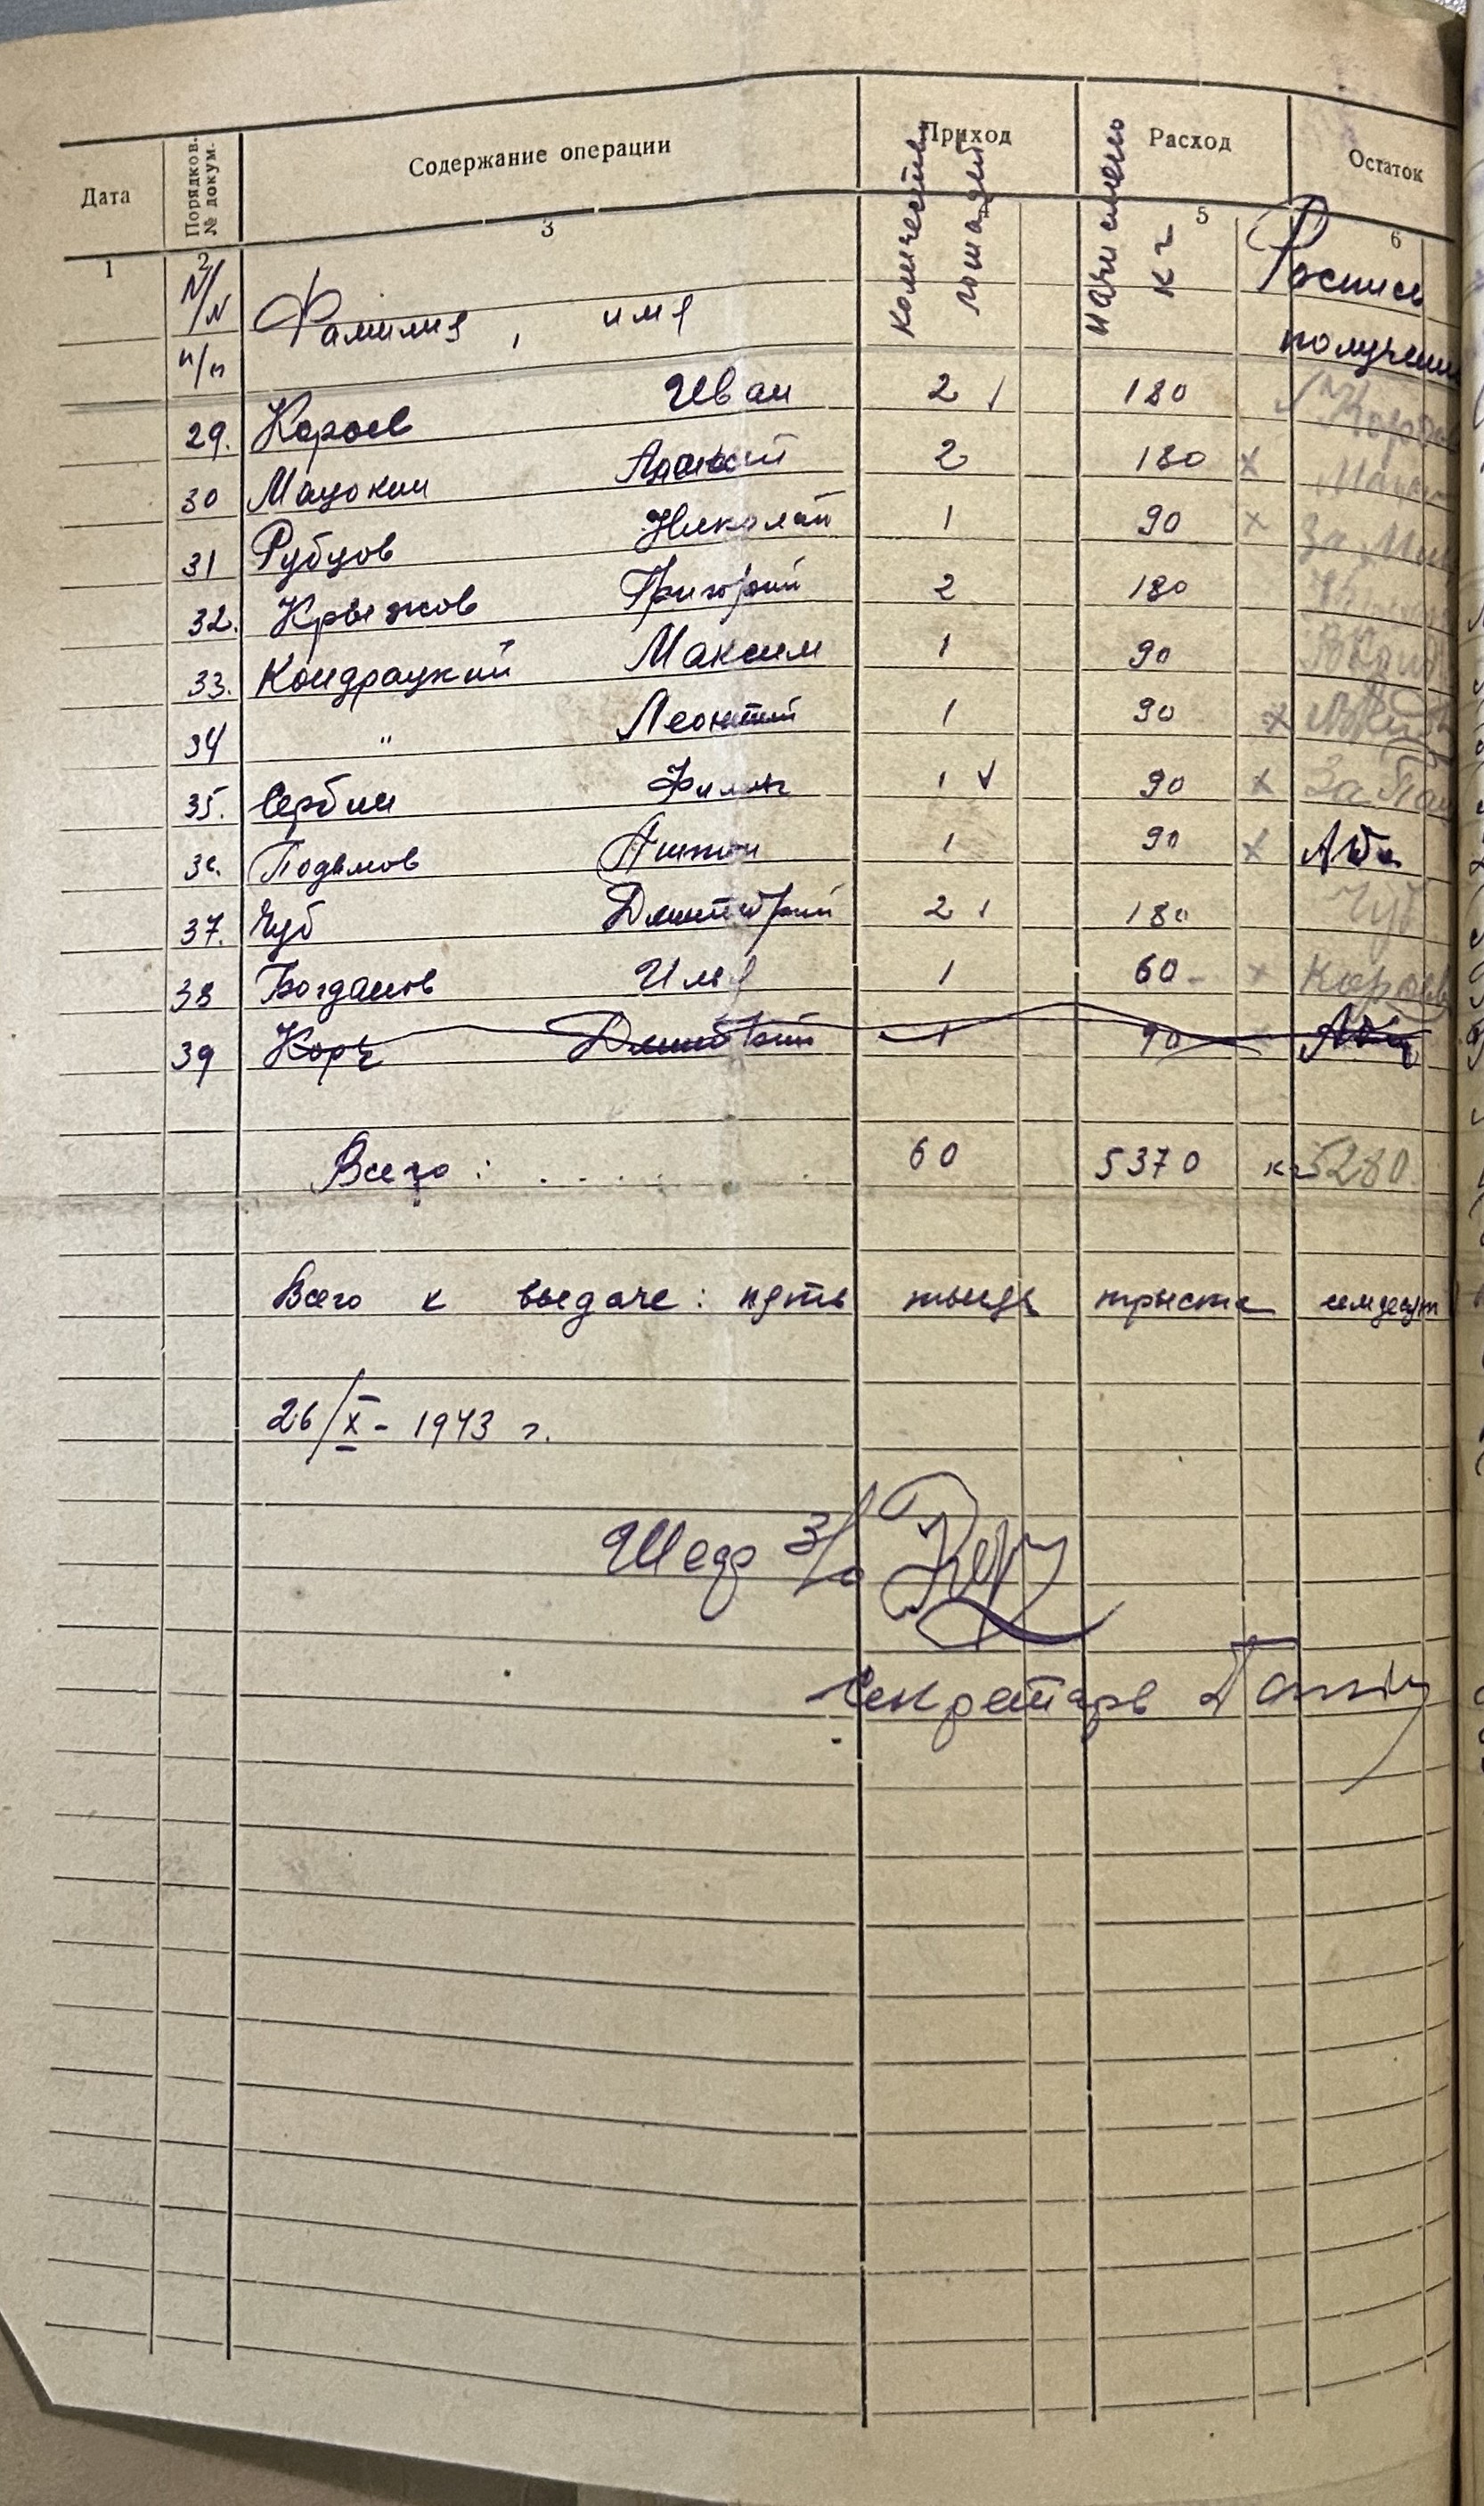 Дата Порядков. № докум. Содержание операции Приход Расход Остаток
1 2 3 5 6
N/N п/п Фамилия, имя количество лошадей начислено кг Роспись получении
29. Короев Иван 2 180
30 Мацокин 2 180 х
31 Рубцов Николай 1 90 х За
32. Крыжков Григорий 2 180
33. Кондрацкий Максим 1 90
34 " Леонтий 1 90 х
35. Сербин Филип 1 v 90 х За
36. Подымов Антон 1 90 х
37. Чуб Дмитрий 2 180 Чуб
38 Богданов Илья 1 60 - х Короев
39 Корч Дмитрий 1 90
Всего: . . . . . 60 5370 кг 5280
Всего к выдаче: пять тысяч трыста семдесят
26/X - 1943 г.
Шеф з/о
Секретарь